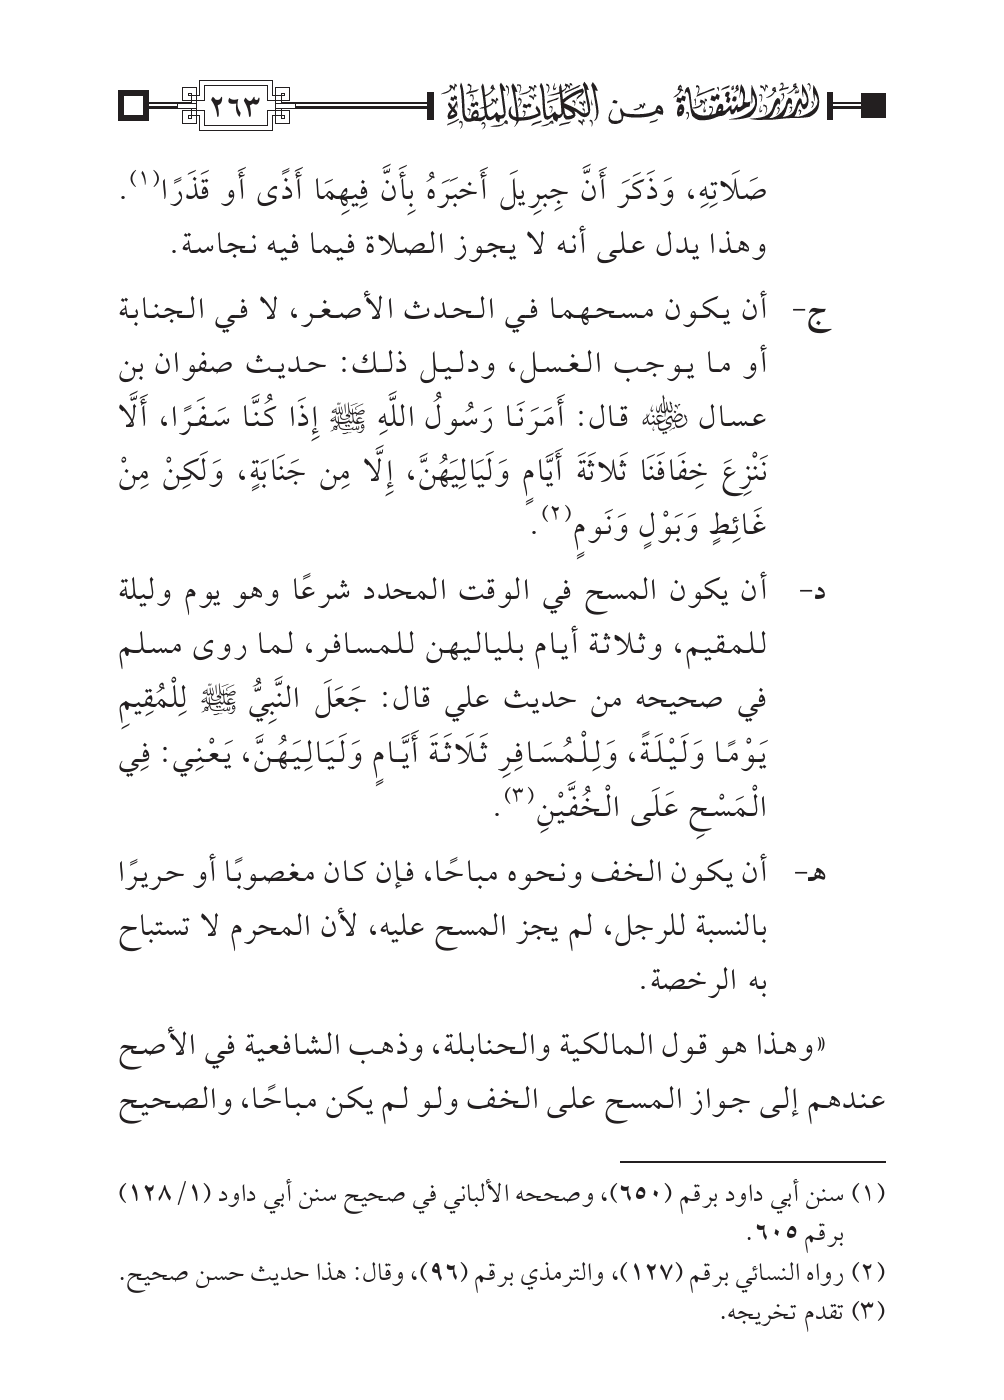 الدرر المنتقاة من الكلمات الملقاة
٢٦٣
صَلَاتِهِ، وَذَكَرَ أَنَّ جِبرِيلَ أَخبَرَهُ بِأَنَّ فِيهِمَا أَذًى أَو قَذَرًا(١).
وهذا يدل على أنه لا يجوز الصلاة فيما فيه نجاسة.
ج- أن يكون مسحهما في الحدث الأصغر، لا في الجنابة
أو ما يوجب الغسل، ودليل ذلك: حديث صفوان بن
عسال رضي الله عنه قال: أَمَرَنَا رَسُولُ اللَّهِ ﷺ إِذَا كُنَّا سَفَرًا، أَلَّا
نَنْزِعَ خِفَافَنَا ثَلاثَةَ أَيَّامٍ وَلَيَالِيَهُنَّ، إِلَّا مِن جَنَابَةٍ، وَلَكِنْ مِنْ
غَائِطٍ وَبَوْلٍ وَنَومٍ(٢).
د- أن يكون المسح في الوقت المحدد شرعًا وهو يوم وليلة
للمقيم، وثلاثة أيام بلياليهن للمسافر، لما روى مسلم
في صحيحه من حديث علي قال: جَعَلَ النَّبِيُّ ﷺ لِلْمُقِيمِ
يَوْمًا وَلَيْلَةً، وَلِلْمُسَافِرِ ثَلَاثَةَ أَيَّامٍ وَلَيَالِيَهُنَّ، يَعْنِي: فِي
الْمَسْحِ عَلَى الْخُفَّيْنِ(٣).
هـ- أن يكون الخف ونحوه مباحًا، فإن كان مغصوبًا أو حريرًا
بالنسبة للرجل، لم يجز المسح عليه، لأن المحرم لا تستباح
به الرخصة.
«وهذا هو قول المالكية والحنابلة، وذهب الشافعية في الأصح
عندهم إلى جواز المسح على الخف ولو لم يكن مباحًا، والصحيح
(١) سنن أبي داود برقم (٦٥٠)، وصححه الألباني في صحيح سنن أبي داود (١/ ١٢٨)
برقم ٦٠٥.
(٢) رواه النسائي برقم (١٢٧)، والترمذي برقم (٩٦)، وقال: هذا حديث حسن صحيح.
(٣) تقدم تخريجه.